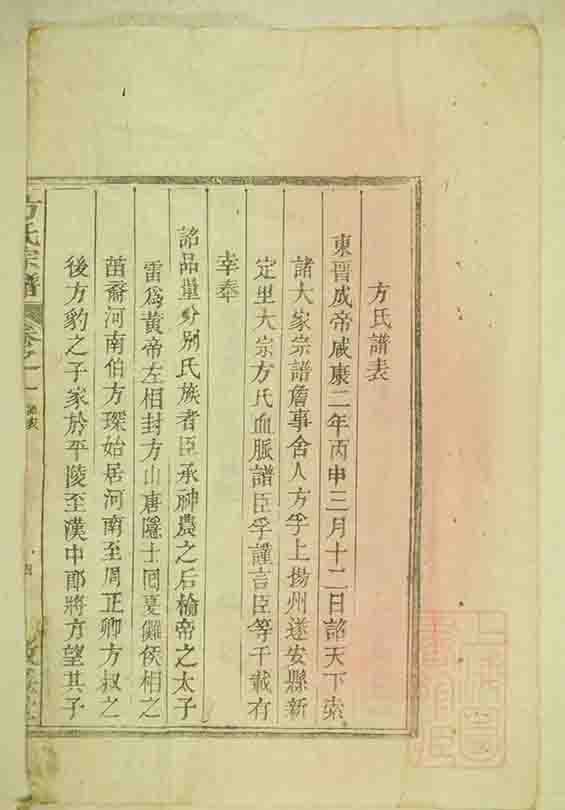 方氏譜表
東晋成帝咸康二年丙申三月十二日詔天下索
諸大家宗譜詹事舍人方孚上揚州遂安縣新
定里大宗方氏血脈譜臣孚謹言臣等千載有
幸奉
詔品量分别氏族者臣承神農之后榆帝之太子
雷爲黄帝左相封方山唐隱士回夏儺侯相之
苗裔河南伯方琛始居河南至周正卿方叔之
後方豹之子家於平陵至漢中郎將方望其子
方氏宗譜 卷之一 譜表
四
上海圖書館